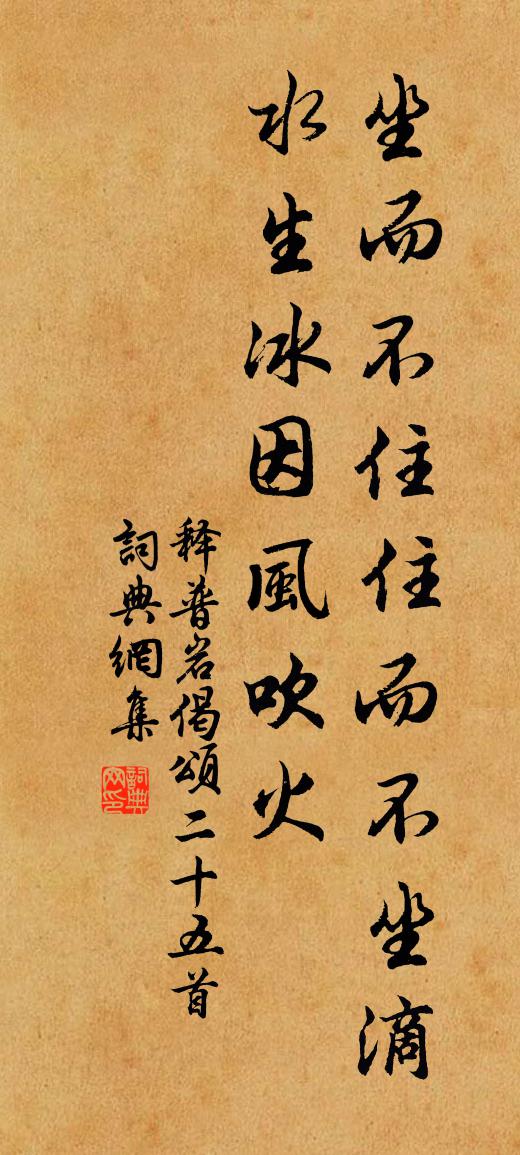 坐而不住住而不坐滴
水生冰因風吹火
释普岩偈頌二十五首
詞典網集
詞典網印